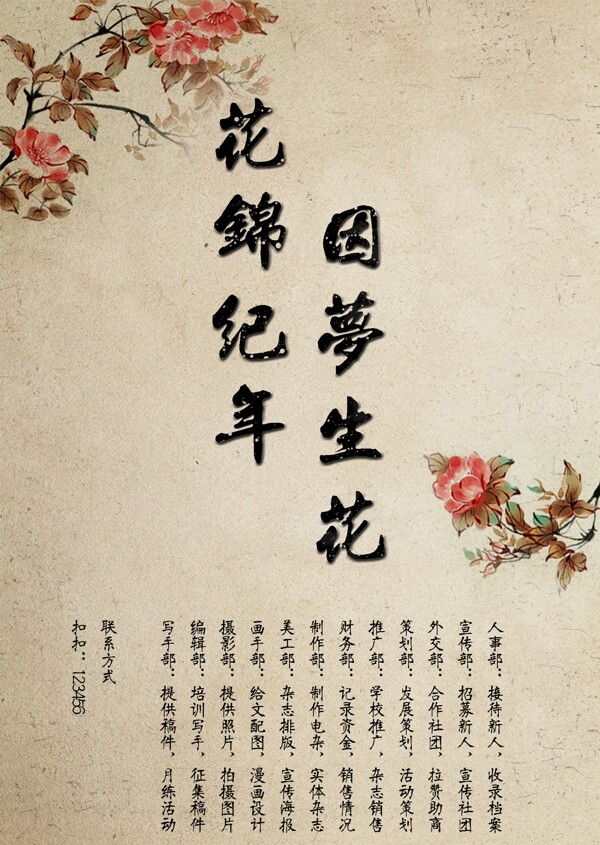 因夢生花
花錦纪年
人事部：接待新人，收录档案
宣传部：招募新人，宣传社团
外交部：合作社团，拉赞助商
策划部：发展策划，活动策划
推广部：学校推广，杂志销售
财务部：记录资金，销售情况
制作部：制作电杂，实体杂志
美工部：杂志排版，宣传海报
画手部：给文配图，漫画设计
摄影部：提供照片，拍摄图片
编辑部：培训写手，征集稿件
写手部：提供稿件，月练活动
联系方式
扣扣：123456